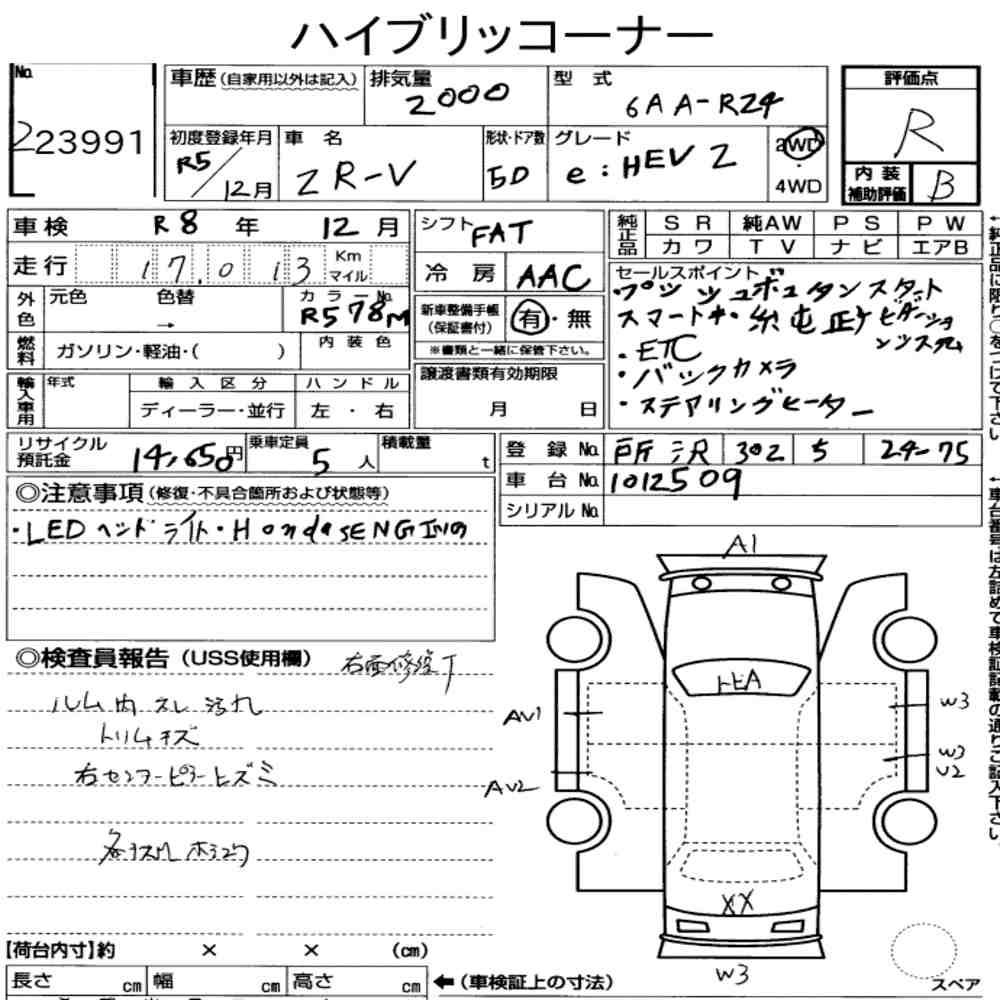 ハイブリッコーナー
No.
223991
車歴 (自家用以外は記入)
排気量
2000
型 式
6AA-RZ4
評価点
R
内 装
補助評価
B
初度登録年月
R5/12月
車 名
ZR-V
形状・ドア数
5D
グレード
e:HEV Z
2WD
・
4WD
車検 R8 年 12 月
走行 17,013 Km マイル
外色
元色 色替
→
カラーNo.
R578M
燃料
ガソリン・軽油・( )
内 装 色
輸入車用
年式
輸 入 区 分
ハ ン ド ル
ディーラー・並行
左 ・ 右
シフト FAT
冷 房 AAC
新車整備手帳
(保証書付)
有・無
※書類と一緒に保管下さい。
譲渡書類有効期限
月 日
純正品
S R 純AW P S P W
カ ワ T V ナ ビ エアB
セールスポイント
・プッシュボタンスタート
・ETC
・バックカメラ
・ステアリングヒーター
リサイクル
預託金
14,650円
乗車定員
5人
積載量
t
登 録 No. 所沢 302 5 24-75
車 台 No. 1012509
シリアル No.
◎注意事項 (修復・不具合箇所および状態等)
・LEDヘッドライト・HondaSENSING
◎検査員報告 (USS使用欄)
右面修復了
ルーム内スレ汚れ
トリムキズ
右センターピラーヒズミ
A1
トビA
AV1
AV2
W3
W3
U2
XX
W3
スペア
【荷台内寸】約 × × (cm)
長さ cm 幅 cm 高さ cm
←(車検証上の寸法)
←純正品に限り○をつけて下さい。
←車台番号は左詰めで車検証記載の通りご記入下さい。